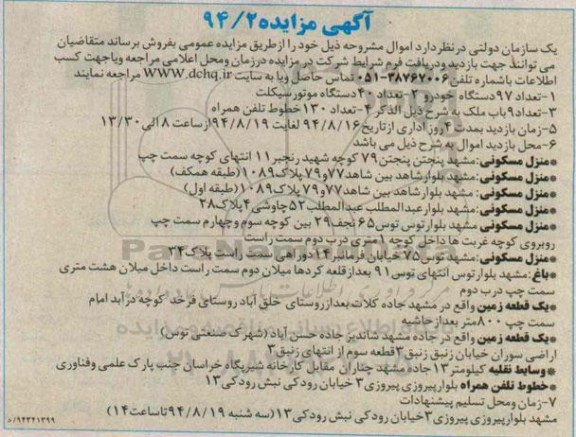 آگهی مزایده ۹۴/۲
یک سازمان دولتی درنظر دارد اموال مشروحه ذیل خود را ازطریق مزایده عمومی بفروش برساند متقاضیان
می توانند جهت بازدید ودریافت فرم شرایط شرکت در مزایده درزمان ومحل اعلامی مراجعه ویاجهت کسب
اطلاعات باشماره تلفن ۳۸۷۶۷۰۰۶-۰۵۱ تماس حاصل ویا به سایت WWW.dchq.ir مراجعه نمایند
۱-تعداد ۹۷ دستگاه خودرو ۲-تعداد ۴۰ دستگاه موتورسیکلت
۳-تعداد ۹ باب ملک به شرح ذیل الذکر ۴-تعداد ۱۳۰ خطوط تلفن همراه
۵-زمان بازدید بمدت ۴ روز اداری ازتاریخ ۹۴/۸/۱۶ لغایت ۹۴/۸/۱۹ ازساعت ۸ الی ۱۳/۳۰
۶-محل بازدید اموال به شرح ذیل می باشد
*منزل مسکونی:مشهد پنجتن پنجتن ۷۹ کوچه شهید رنجبر ۱۱ انتهای کوچه سمت چپ
*منزل مسکونی: مشهد بلوارشاهد بین شاهد ۷۷و۷۹ پلاک ۱۰۸۹ (طبقه همکف)
*منزل مسکونی: مشهد بلوارشاهد بین شاهد ۷۷و۷۹ پلاک ۱۰۸۹ (طبقه اول)
*منزل مسکونی:مشهد بلوارعبدالمطلب عبدالمطلب ۵۲ چاوشی ۴ پلاک ۲۸
*منزل مسکونی:مشهد بلوارتوس توس ۶۵ نجف ۲۹ بین کوچه سوم وچهارم سمت چپ
روبروی کوچه غربت ها داخل کوچه ۱ متری درب دوم سمت راست
*منزل مسکونی:مشهد توس ۷۵ خیابان فرمانبر ۱۴ دوراهی سمت راست پلاک ۳۴
*باغ:مشهد بلوارتوس انتهای توس ۹۱ بعداز قلعه کردها میلان دوم سمت راست داخل میلان هشت متری
سمت چپ درب دوم
*یک قطعه زمین واقع در مشهد جاده کلات بعدازروستای خلق آباد روستای فرخد کوچه درآبد امام
سمت چپ ۸۰۰متر بعدازحاشیه
*یک قطعه زمین واقع در جاده مشهد شاندیز جاده حسن آباد (شهرک صنعتی توس)
اراضی سوران خیابان زنبق زنبق ۳ قطعه سوم از انتهای زنبق ۳
*وسایط نقلیه کیلومتر ۱۳ جاده مشهد چناران مقابل کارخانه شیرپگاه خراسان جنب پارک علمی وفناوری
*خطوط تلفن همراه بلوارپیروزی پیروزی ۳ خیابان رودکی نبش رودکی ۱۳
۷-زمان ومحل تسلیم پیشنهادات
مشهد بلوارپیروزی پیروزی ۳ خیابان رودکی نبش رودکی ۱۳ (سه شنبه ۹۴/۸/۱۹ تاساعت ۱۴)
۹۴۳۲۱۳۹۹/د